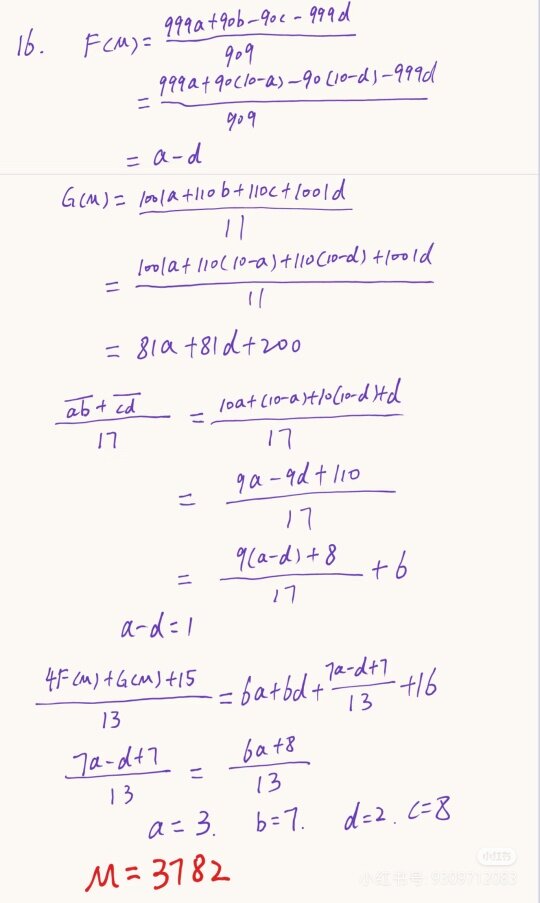 16. F(M) = \frac{999a+90b-90c-999d}{909}
= \frac{999a+90(10-a)-90(10-d)-999d}{909}
= a-d
G(M) = \frac{1001a+110b+110c+1001d}{11}
= \frac{1001a+110(10-a)+110(10-d)+1001d}{11}
= 81a+81d+200
\frac{\overline{ab}+\overline{cd}}{17} = \frac{10a+(10-a)+10(10-d)+d}{17}
= \frac{9a-9d+110}{17}
= \frac{9(a-d)+8}{17}+6
a-d=1
\frac{4F(M)+G(M)+15}{13} = 6a+6d+\frac{7a-d+7}{13}+16
\frac{7a-d+7}{13} = \frac{6a+8}{13}
a=3. b=7. d=2. c=8
M=3782
小红书
小红书号: 9309712083